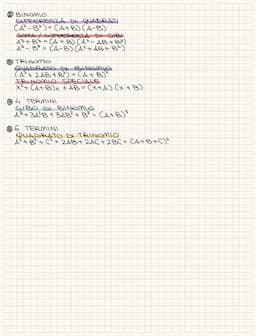 ② BINOMIO
DIFFERENZA DI QUADRATI
(A² - B²) = (A+B)(A-B)
SOMA / DIFFERENZA DI CUBI
A³+B³ = (A+B)(A² - AB + B²)
A³ - B³ = (A-B)(A² + AB + B²)
③ TRINOMIO
QUADRATO DI BINOMIO
(A² + 2AB + B²) = (A+B)²
TRINOMIO SPECIALE
X² + (A+B)X + AB = (X+A)(X+B)
④ 4 TERMINI
CUBO DI BINOMIO
A³ + 3A²B + 3AB² + B³ = (A+B)³
⑥ 6 TERMINI
QUADRATO DI TRINOMIO
A² + B² + C² + 2AB + 2AC + 2BC = (A+B+C)²